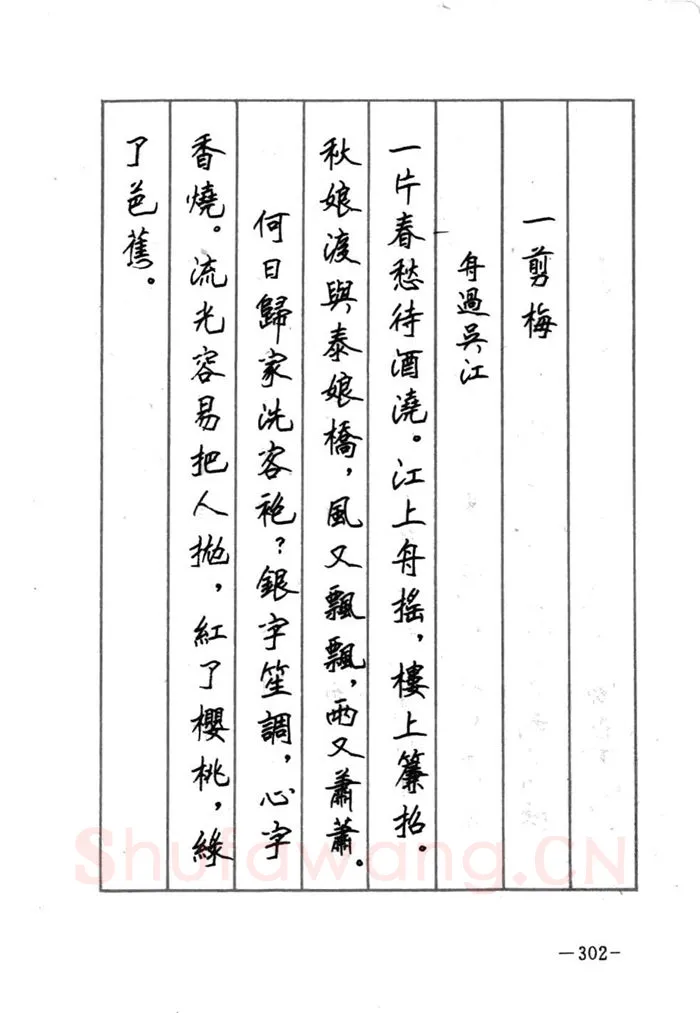 一剪梅
舟過吳江
一片春愁待酒澆。江上舟搖，樓上簾招。
秋娘渡與泰娘橋，風又飄飄，雨又蕭蕭。
何日歸家洗客袍？銀字笙調，心字
香燒。流光容易把人拋，紅了櫻桃，綠
了芭蕉。
Shufawang.CN
—302-